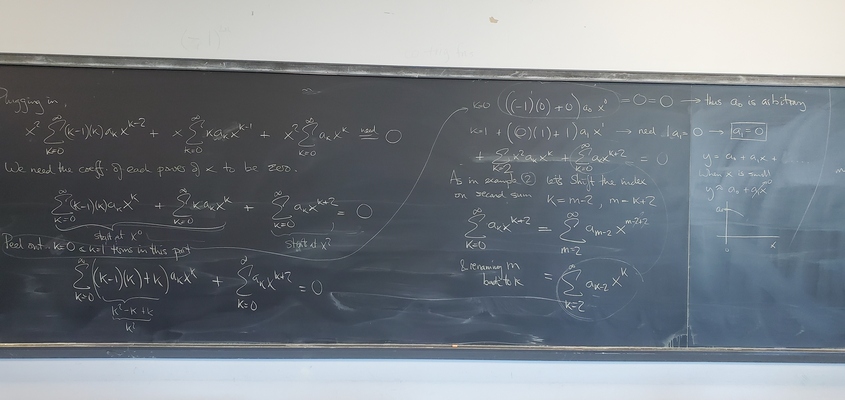 Plugging in,
x² ∑_{k=0}^{∞} (k-1)(k) a_k x^{k-2} + x ∑_{k=0}^{∞} k a_k x^{k-1} + x² ∑_{k=0}^{∞} a_k x^k = need 0
We need the coeff. of each power of x to be zero.
∑_{k=0}^{∞} (k-1)(k) a_k x^k + ∑_{k=0}^{∞} k a_k x^k + ∑_{k=0}^{∞} a_k x^{k+2} = 0
start at x⁰
start at x²
Peel out k=0 & k=1 terms in this part
∑_{k=0}^{∞} ((k-1)(k) + k) a_k x^k + ∑_{k=0}^{∞} a_k x^{k+2} = 0
k² - k + k
k²
k=0 ((-1)(0) + 0) a_0 x⁰ = 0 = 0 → thus a_0 is arbitrary
k=1 + ((0)(1) + 1) a_1 x¹ → need 1a_1 = 0 → a_1 = 0
+ ∑_{k=2}^{∞} k² a_k x^k + ∑_{k=0}^{∞} a_k x^{k+2} = 0
As in example ② Let's shift the index
on second sum k = m-2, m = k+2
∑_{k=0}^{∞} a_k x^{k+2} = ∑_{m=2}^{∞} a_{m-2} x^{m-2+2}
& renaming m
back to k = ∑_{k=2}^{∞} a_{k-2} x^k
y = a_0 + a_1 x +
When x is small
y = a_0 + a_1 x
a_0
0 x